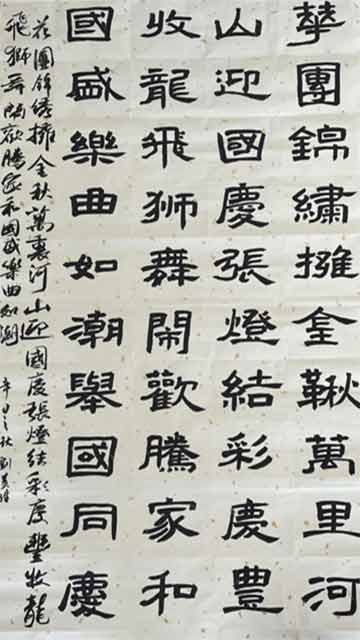 華團錦繡擁金鞦萬里河
山迎國慶張燈結彩慶豊
收龍飛狮舞鬧歡騰家和
國盛樂曲如潮舉國同慶
花團錦繡擁金秋萬裏河山迎國慶張燈结彩慶豐收龍
飛獅舞鬧歡騰家和國盛樂曲如潮 辛丑之秋 劉